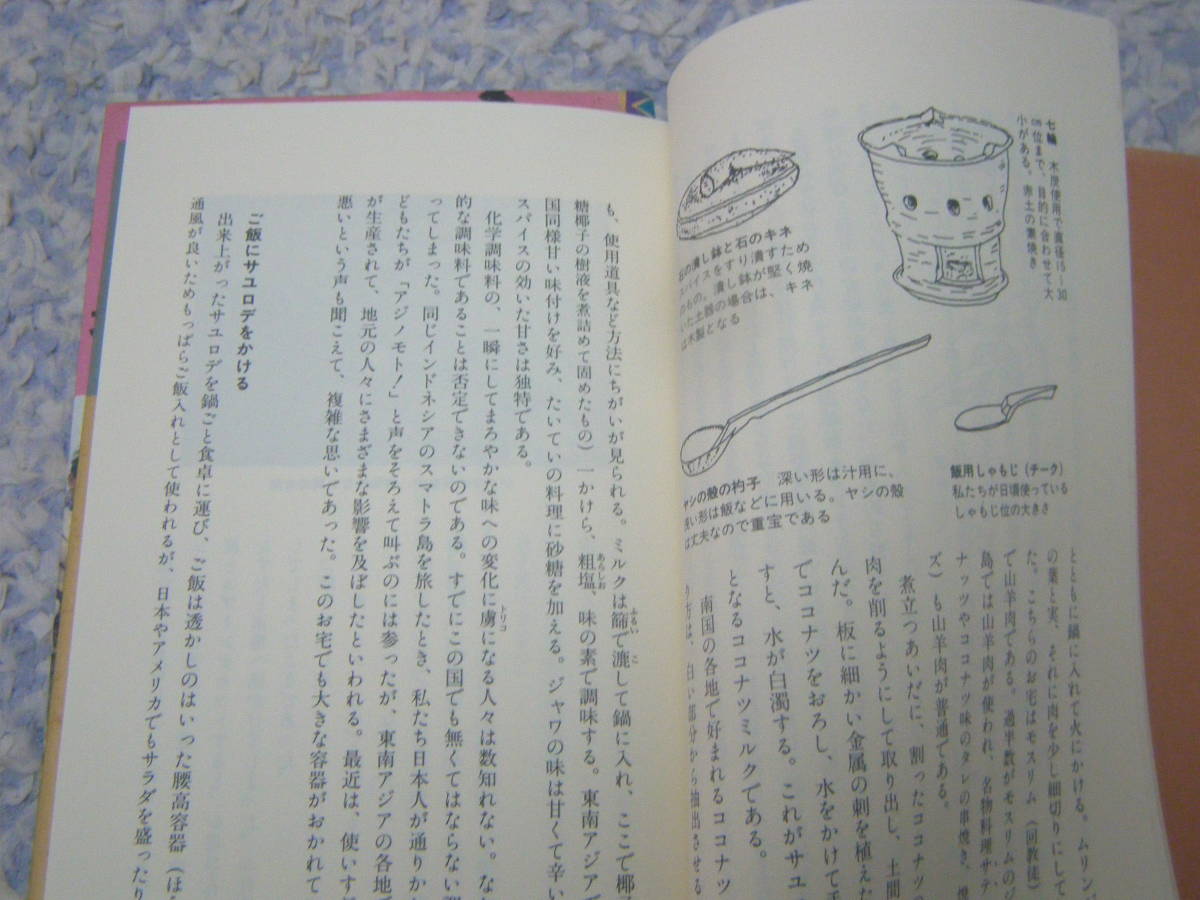 七輪　木炭使用で直径15～30
cm位まで、目的に合わせて大
小がある。赤土の素焼き
石の潰し鉢と石のキネ
スパイスをすり潰すため
のもの。潰し鉢が堅く焼
いた土器の場合は、キネ
は木製となる
ヤシの殻の杓子　深い形は汁用に、
浅い形は飯などに用いる。ヤシの殻
は丈夫なので重宝である
飯用しゃもじ（チーク）
私たちが日頃使っている
しゃもじ位の大きさ
とともに鍋に入れて火にかける。ムリン
の葉と実、それに肉を少し細切りにして
た。こちらのお宅はモスリム（回教徒）
で山羊肉である。過半数がモスリムのジ
島では山羊肉が使われ、名物料理サテ
ナッツやココナツ味のタレの串焼き、
ズ）も山羊肉が普通である。
煮立つあいだに、割ったココナツの
肉を削るようにして取り出し、土間
んだ。板に細かい金属の刺を植えた
でココナツをおろし、水をかけて手
すと、水が白濁する。これがサユ
となるココナツミルクである。
南国の各地で好まれるココナツ
り方は、白い部分から抽出させる
も、使用道具など方法にちがいが見られる。ミルクは篩で漉して鍋に入れ、ここで椰
糖椰子の樹液を煮詰めて固めたもの）一かけら、粗塩、味の素で調味する。東南アジアで
国同様甘い味付けを好み、たいていの料理に砂糖を加える。ジャワの味は甘くて辛い
スパイスの効いた甘さは独特である。
化学調味料の、一瞬にしてまろやかな味への変化に虜になる人々は数知れない。な
的な調味料であることは否定できないのである。すでにこの国でも無くてはならない
ってしまった。同じインドネシアのスマトラ島を旅したとき、私たち日本人が通りか
どもたちが「アジノモト！」と声をそろえて叫ぶのには参ったが、東南アジアの各地
が生産されて、地元の人々にさまざまな影響を及ぼしたといわれる。最近は、使いす
悪いという声も聞こえて、複雑な思いであった。このお宅でも大きな容器がおかれて
ご飯にサユロデをかける
出来上がったサユロデを鍋ごと食卓に運び、ご飯は透かしのはいった腰高容器（
通風が良いためもっぱらご飯入れとして使われるが、日本やアメリカでもサラダを盛ったり